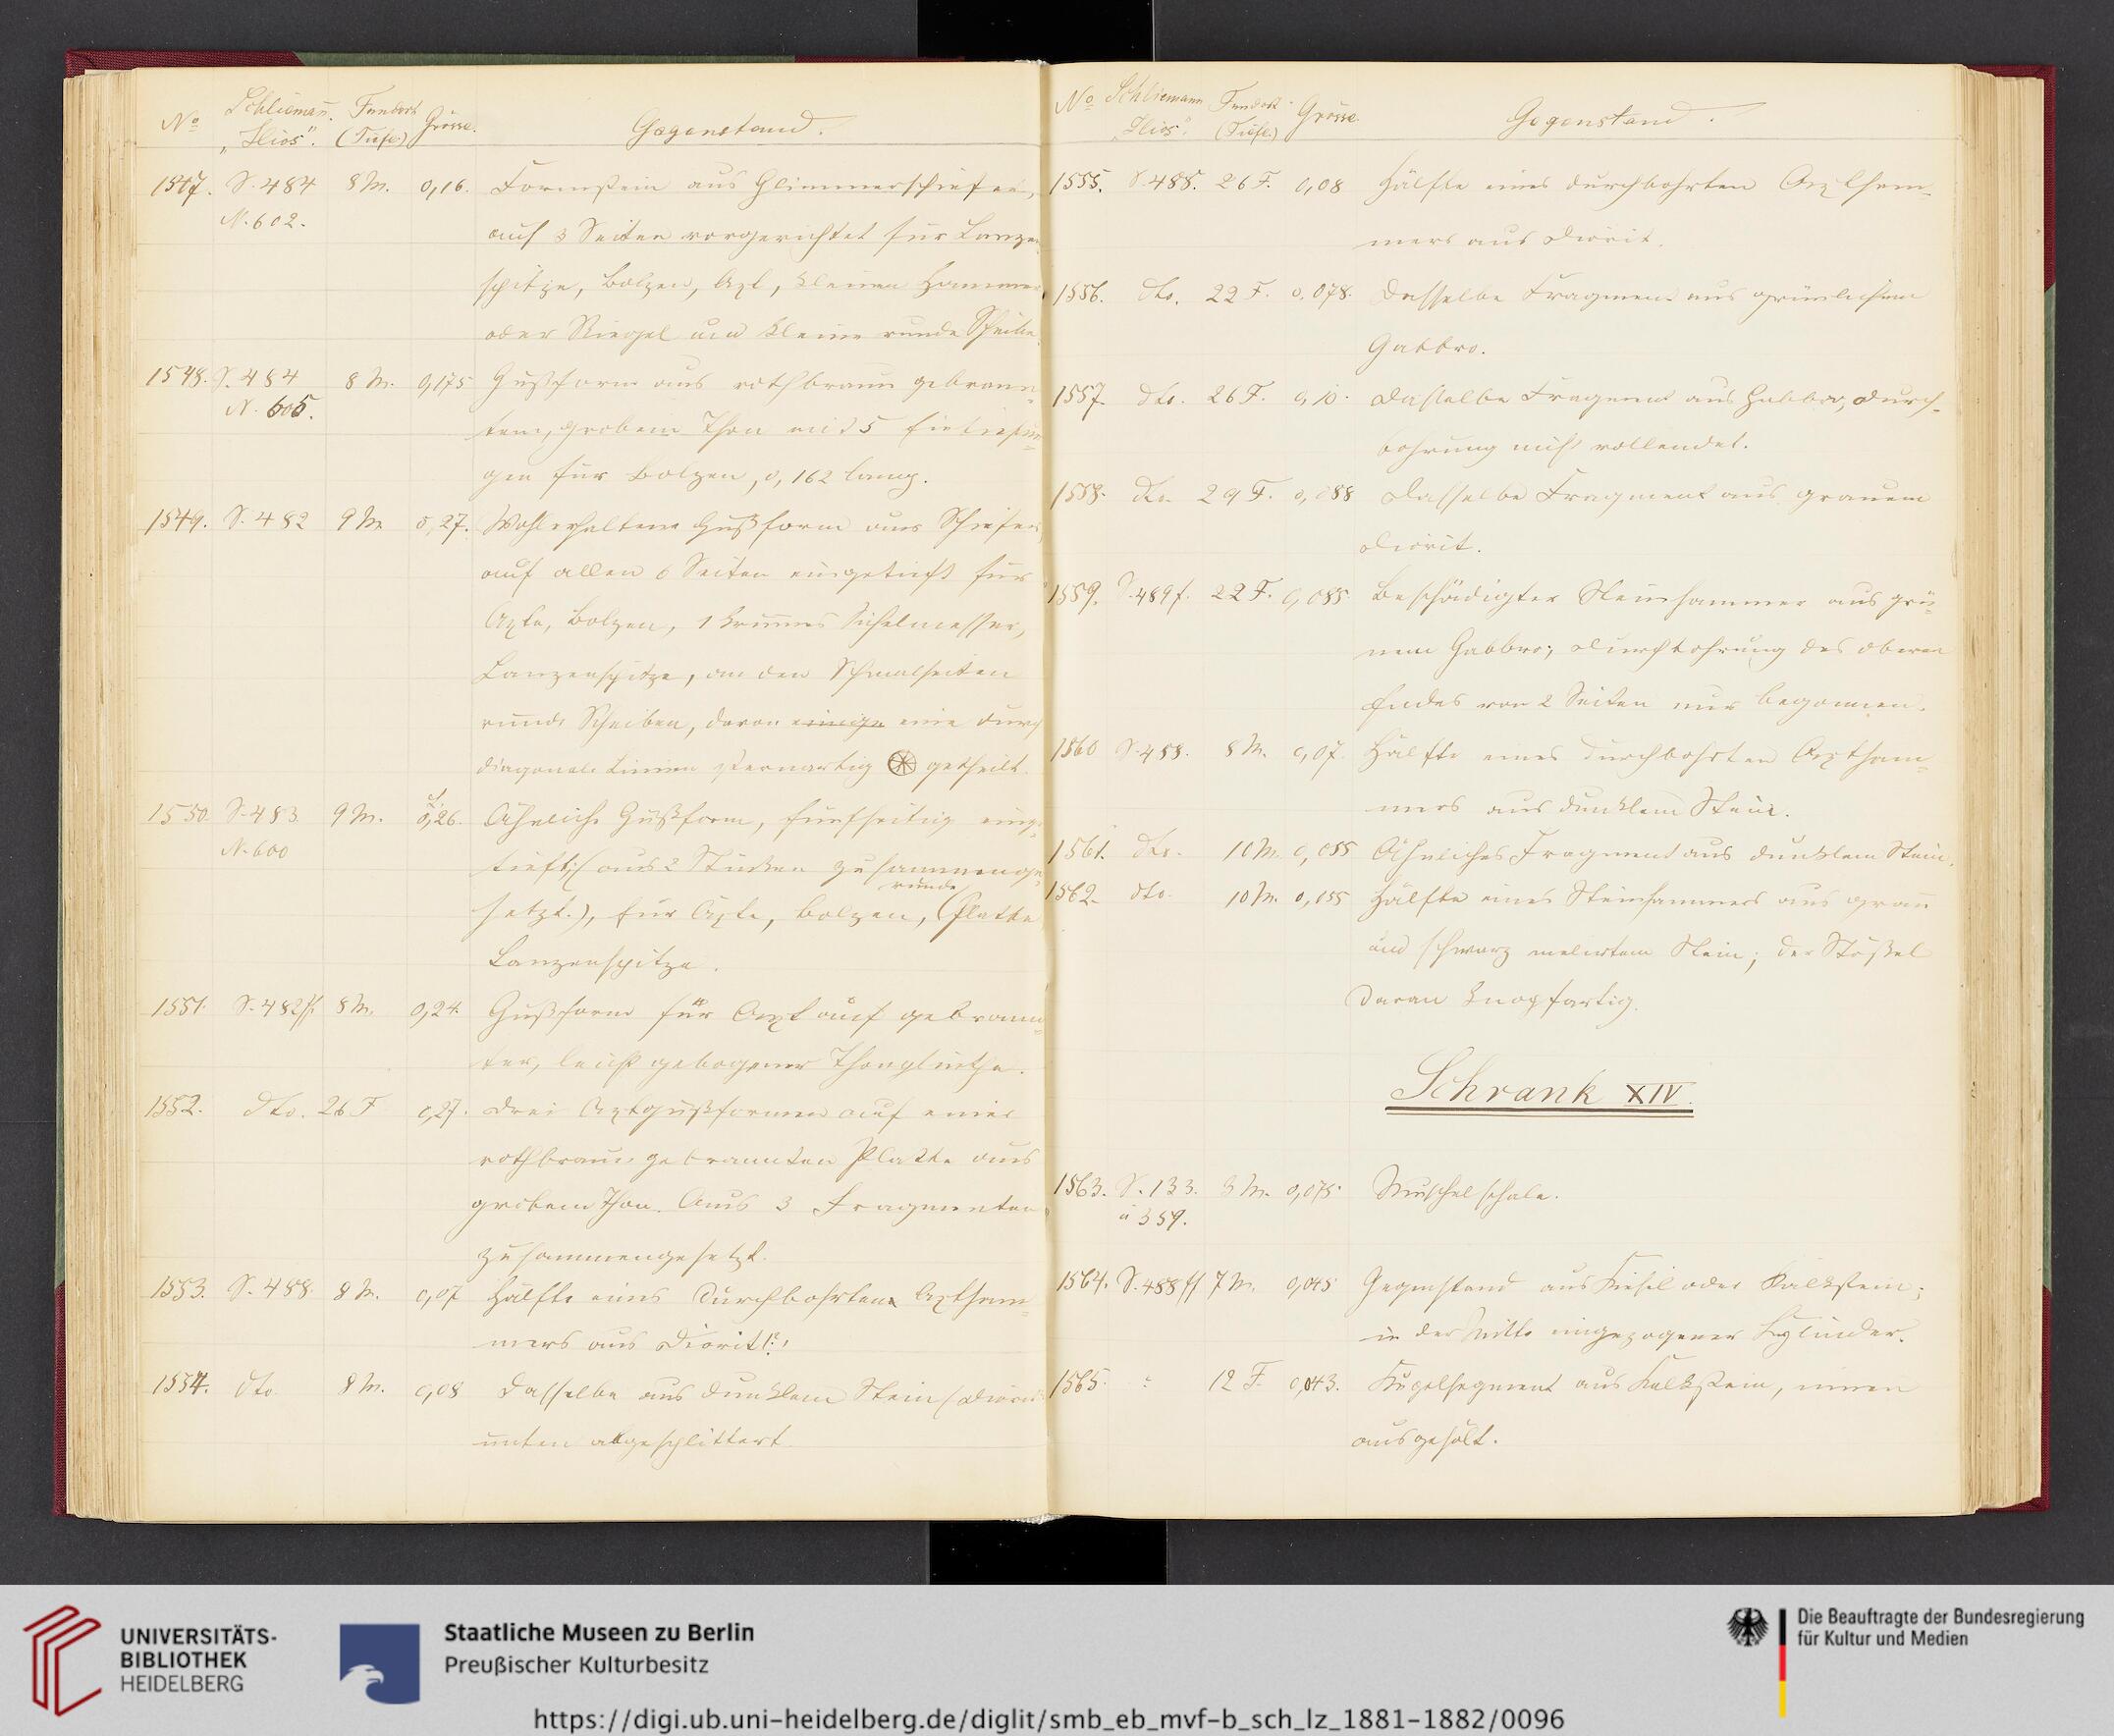 No Schlieman̅ Fundort Grösse. Gegenstand.
„Ilios“. (Tiefe)
1547. S. 484 8 M. 0,16. Formstein aus Glimmerschiefer,
N. 602. auf 3 Seiten vorgerichtet für Lanzen
spitze, Bolzen, Axt, kleinen Hammer
oder Riegel und kleine runde Scheibe.
1548. S. 484 8 M. 0,175 Gußform aus rothbraun gebrann=
N. 605. tem, grobem Thon mit 5 Eintiefun=
gen für Bolzen, 0,162 lang.
1549. S. 482 9 M 0,27. Wohlerhaltene Gußform aus Schiefer,
auf allen 6 Seiten eingetieft für
Axte, Bolzen, 1 krummes Sichelmesser,
Lanzenspitze, an den Schmalseiten
runde Scheiben, davon einige eine durch
diagonale Linien sternartig getheilt.
1550. S. 483. 9 M. 0,26. Ähnliche Gußform, fünfseitig einge=
N. 600 tieft; (aus 2 Stücken zusammenge=
runde
setzt.), für Äxte, Bolzen, Platte
Lanzenspitze.
1551. S. 482ff. 8 M. 0,24. Gußform für Axt auf gebrann=
ter, leicht gebogener Thonplinthe.
1552. dto. 26 F 0,27. Drei Axtgußformen auf einer
rothbraun gebrannten Platte aus
grobem Thon. Aus 3 Fragmenten
zusammengesetzt.
1553. S. 488. 8 M. 0,07 Hälfte eines durchbohrten Axtham=
mers aus Diorit
1554. dto. 8 M. 0,08 Dasselbe aus dunklem Stein (Diorit
unten abgesplittert
No Schliemann Fundort Grösse. Gegenstand.
„Ilios“. (Tiefe)
1555. S. 488. 26 F. 0,08 Hälfte eines durchbohrten Axtham=
mers aus Diorit.
1556. dto. 22 F. 0,078. Dasselbe Fragment aus grünlichem
Gabbro.
1557. dto. 26 F. 0,10. Dasselbe Fragment aus Gabbro, Durch=
bohrung nicht vollendet.
1558. dto. 29 F. 0,088 Dasselbe Fragment aus grauem
Diorit.
1559. S. 489f. 22 F. 0,085. Beschädigter Steinhammer aus grü=
nem Gabbro; Durchbohrung des oberen
Endes von 2 Seiten nur begonnen.
1560 S. 488. 8 M. 0,07 Hälfte eines durchbohrten Axtham=
mers aus dunklem Stein.
1561. dto. 10 M. 0,055 Ähnliches Fragment aus dunklem Stein.
1562. dto. 10 M. 0,055 Hälfte eines Steinhammers aus grau
und schwarz melirtem Stein; der Stößel
daran knopfartig.
Schrank XIV.
1563. S. 133. 3 M. 0,075. Muschelschale.
u 359.
1564. S. 488ff 7 M. 0,045 Gegenstand aus Kiesel oder Kalkstein;
in der Mitte eingezogener Kylinder.
1565. 12 F. 0,043. Kugelsegment aus Kalkstein, innen
ausgehölt.
UNIVERSITÄTS-
BIBLIOTHEK
HEIDELBERG
Staatliche Museen zu Berlin
Preußischer Kulturbesitz
Die Beauftragte der Bundesregierung
für Kultur und Medien
https://digi.ub.uni-heidelberg.de/diglit/smb_eb_mvf-b_sch_lz_1881-1882/0096